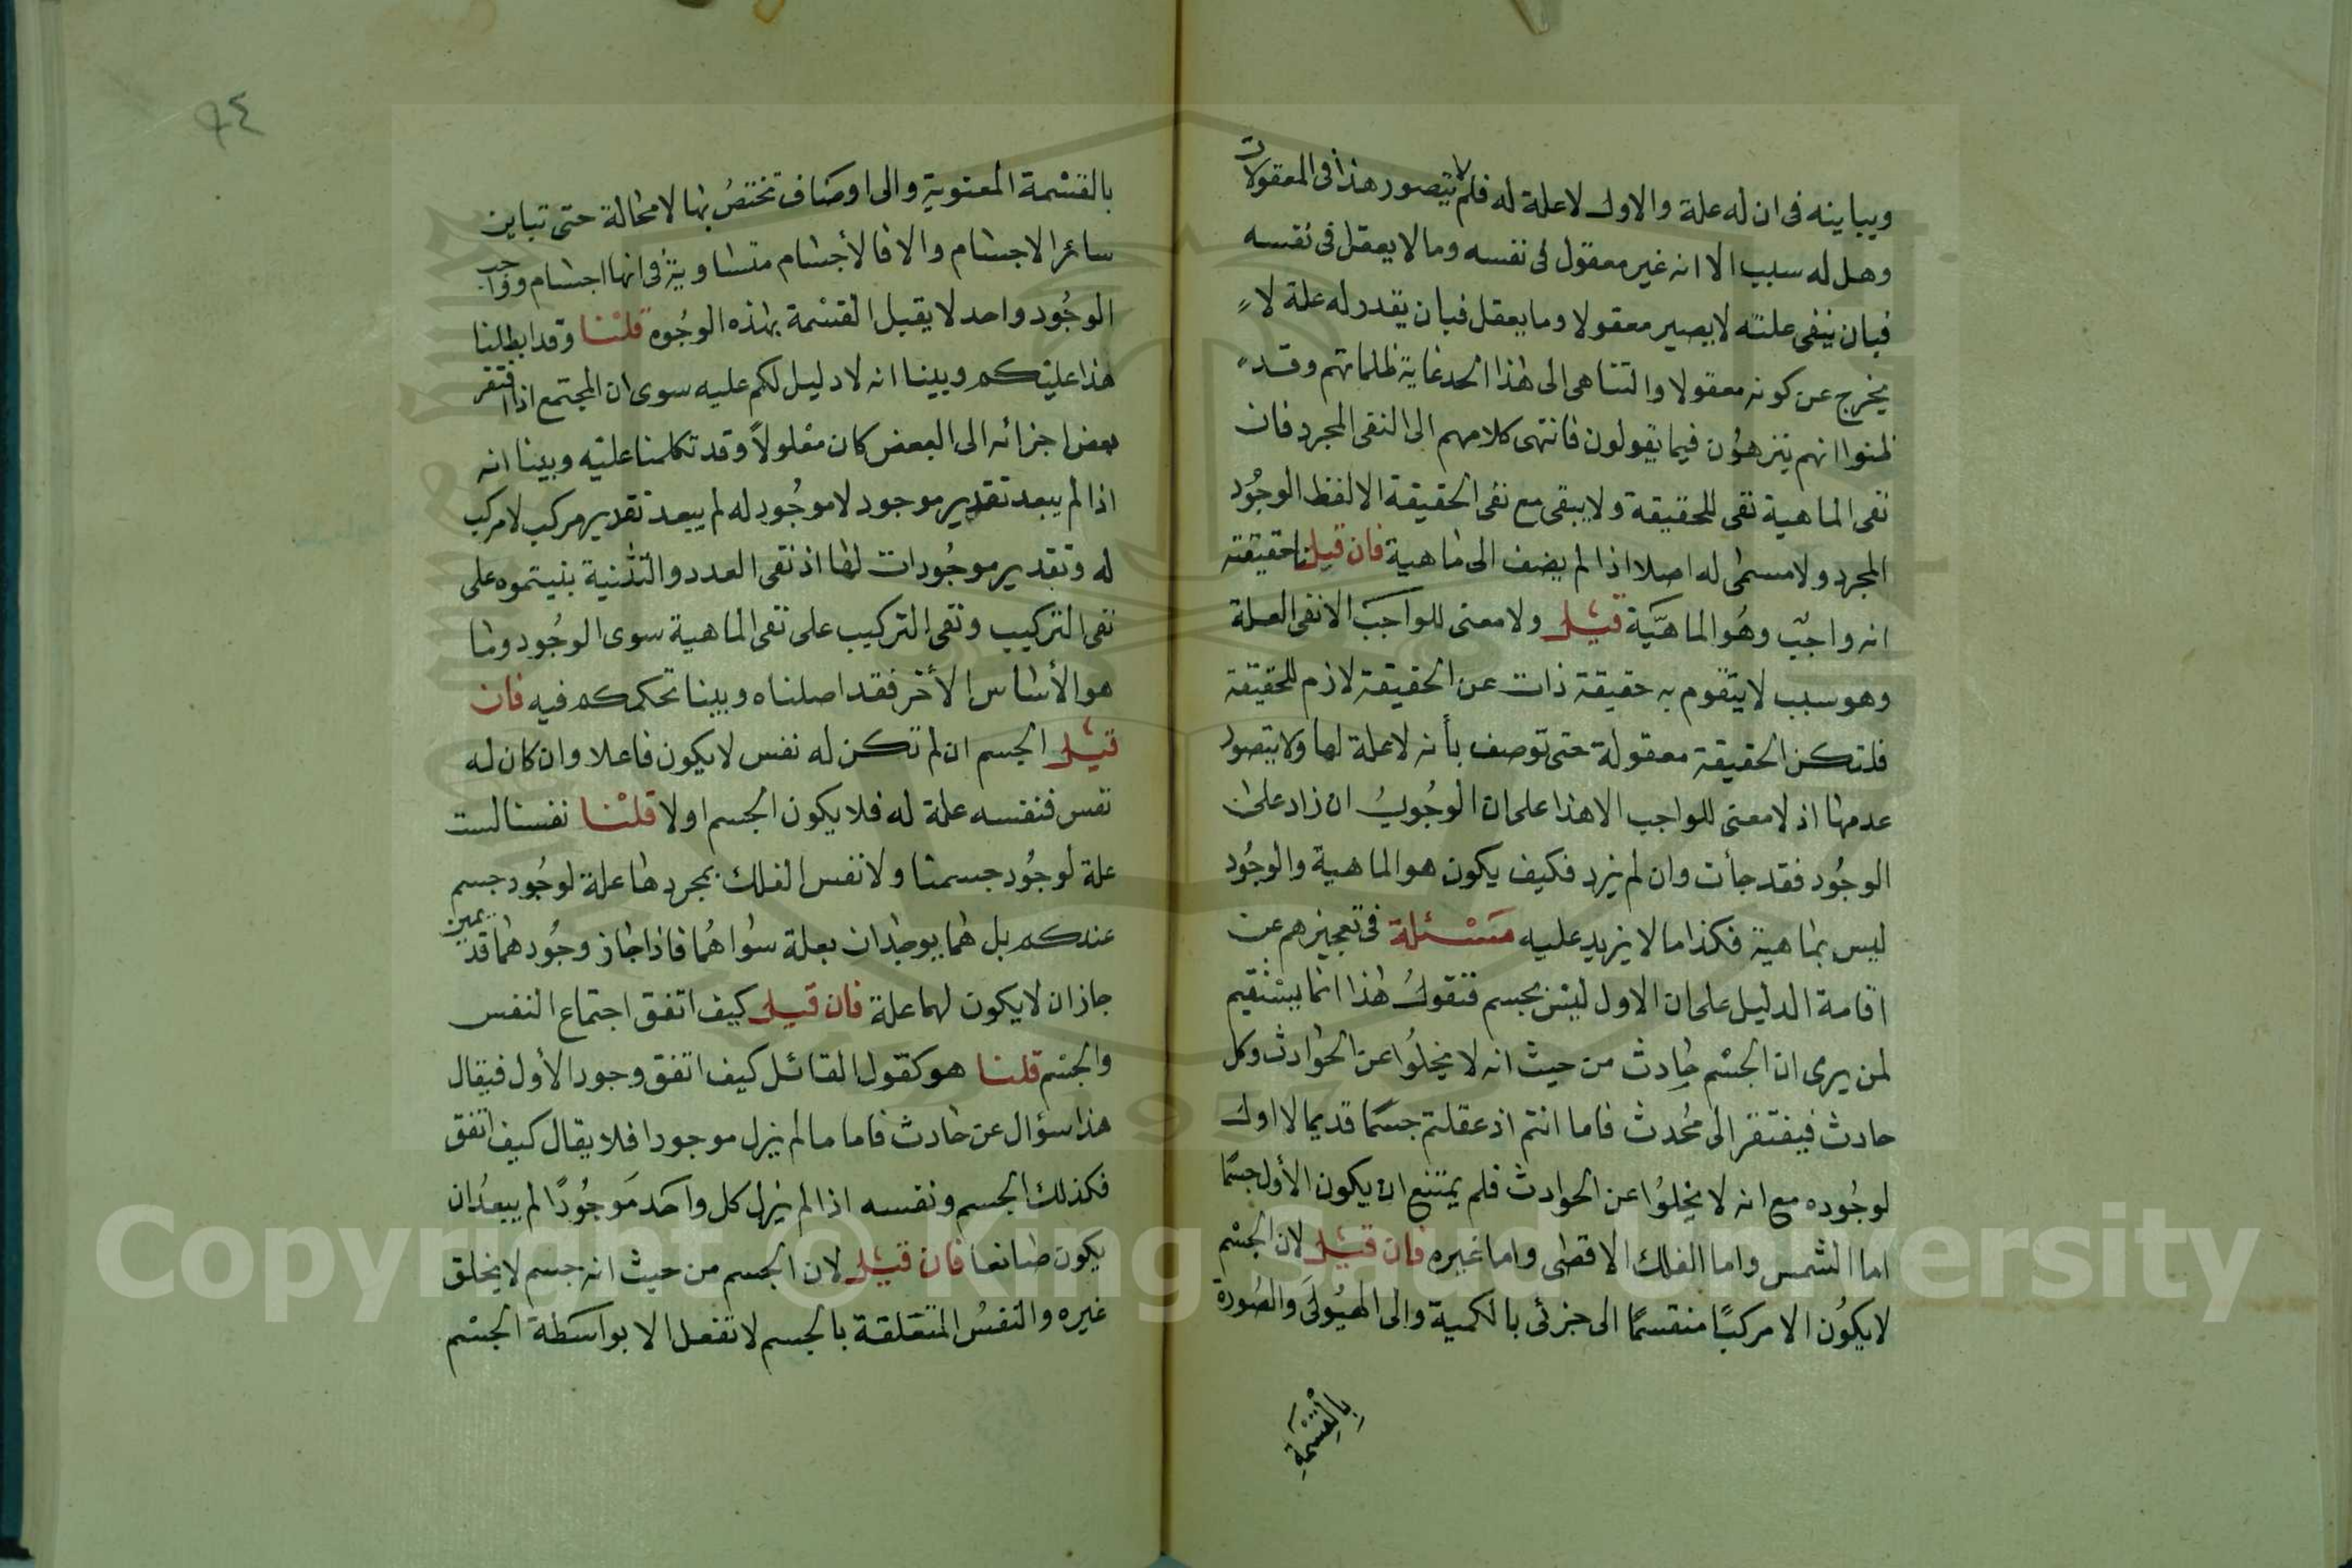 ويباينه فى ان له علة والاول لا علة له فلم لا يتصور هذا فى المعقولات
وهل له سبب الا انه غير معقول فى نفسه وما لا يعقل فى نفسه
فبان ينفى علته لا يصير معقولا وما يعقل فبان يقدر له علة لا
يخرج عن كونه معقولا والتناهى الى هذا الحد غاية ظلماتهم وقد
ظنوا انهم ينزهون فيما يقولون فانتهى كلامهم الى النفى المجرد فان
نفى الماهية نفى للحقيقة ولا يبقى مع نفى الحقيقة الا لفظ الوجُود
المجرد ولا مسمى له اصلا اذا لم يضف الى ماهية فان قيل حقيقته
انه واجب وهُو الماهيَّة قيل ولا معنى للواجب الا نفى العلة
وهو سبب لا يتقوم به حقيقة ذات عن الحقيقة لازم للحقيقة
فلتكن الحقيقة معقولة حتى توصف بأنه لا علة لها ولا يتصور
عدمها اذ لا معنى للواجب الا هذا على ان الوجُوب ان زاد على
الوجُود فقد جأت وان لم يزد فكيف يكون هو الماهية والوجُود
ليس بماهية فكذا ما لا يزيد عليه مَسْئلة فى تعجيزهم عن
اقامة الدليل على ان الاول ليس بجسم فنقولُ هذا انما يستقيم
لمن يرى ان الجسْم حادث من حيث انه لا يخلوُا عن الحوادث وكل
حادث فيفتقر الى مُحدث فاما انتم اذ عقلتم جسمًا قديما لا اول
لوجُوده مع انه لا يخلوُا عن الحوادث فلم يمتنع ان يكون الأول جسمًا
اما الشمس واما الفلك الاقصى واما غيره فان قيل لان الجسْم
لا يكوُن الا مركبًا منقسمًا الى جزئى بالكمية والى الهيُولى والصُورة
بالقِسْمةِ
٩٤
بالقسْمة المعنوية والى اوصَاف تختصُ بها لا محالة حتى تباين
سائر الاجسام والا فالأجسام متساوية فى انها اجسام وواجب
الوجُود واحد لا يقبل القسْمة بهذه الوجُوه قلنا وقد ابطلنا
هذا عليكم وبينا انه لا دليل لكم عليه سوى ان المجتمع اذا افتقر
بعض اجزائه الى البعض كان معْلولاً وقد تكلمنا عليه وبينا انه
اذا لم يبعد تقدير موجود لا موجُود له لم يبعد تقدير مركب لا مركب
له وتقدير موجُودات لها اذ نفى العدد والتثنية بنيتموه على
نفى التركيب ونفى التركيب على نفى الماهية سوى الوجُود وما
هو الأساس الأخر فقد اصلناه وبينا تحكمكم فيه فان
قيل الجسم ان لم تكن له نفس لا يكون فاعلا وان كان له
نفس فنفسه علة له فلا يكون الجسم اولا قلنا نفسنا لست
علة لوجُود جسمنا ولا نفس الفلك بمجردها علة لوجُود جسم
عندكم بل هما يوجدان بعلة سواهُما فاذا جاز وجُودهما قديمين
جاز ان لا يكون لهما علة فان قيل كيف اتفق اجتماع النفس
والجسم قلنا هو كقول القائل كيف اتفق وجود الأول فيقال
هذا سؤال عن حادث فاما ما لم يزل موجودا فلا يقال كيف اتفق
فكذلك الجسم ونفسه اذا لم يزل كل واحَد مَوجُودًا لم يبعُد ان
يكون صانعا فان قيل لان الجسم من حيث انه جسم لا يخلق
غيره والنفسُ المتعلقة بالجسم لا تفعل الا بواسَطة الجسْم
Copyright © King Saud University
1957